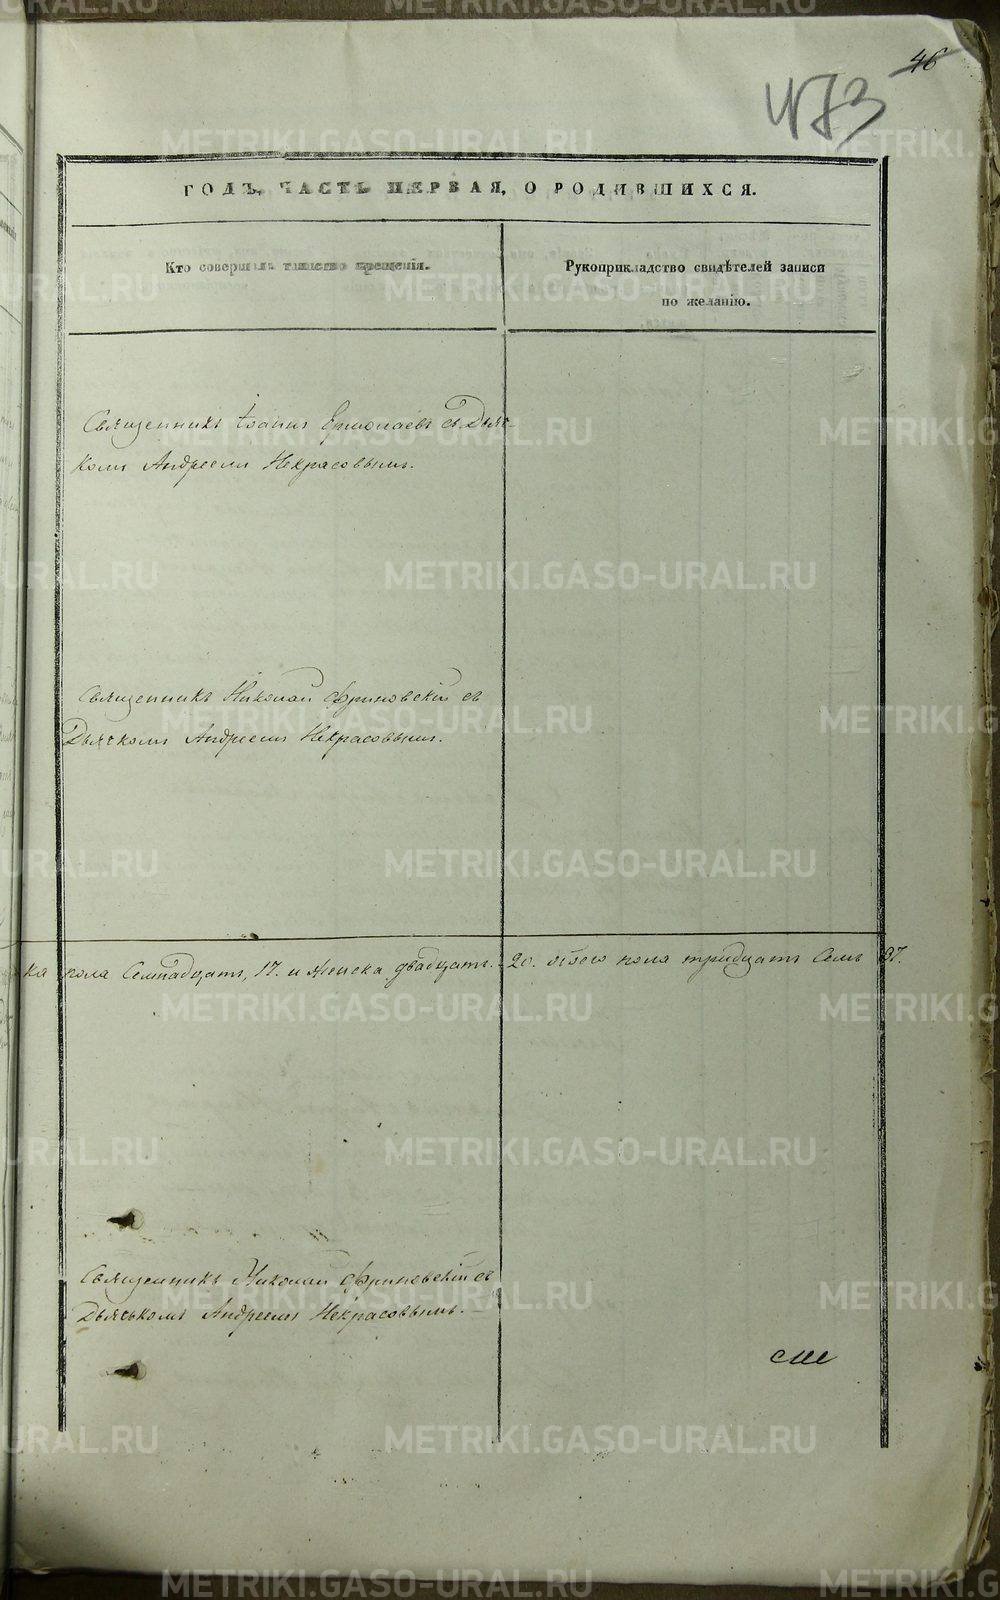 46
473
ГОДЪ, ЧАСТЬ ПЕРВАЯ, О РОДИВШИХСЯ.
Кто совершалъ таинство крещенія.
Рукоприкладство свидѣтелей записи
по желанію.
Священникъ Іоаннъ Ермолаевъ съ Дьяч-
комъ Андреемъ Некрасовымъ.
Священникъ Николай Фриновскій съ
Дьячкомъ Андреемъ Некрасовымъ.
ка пола Семнадцать, 17. и женска двадцать. 20. обоего пола тридцать Семь 37.
Священникъ Николай Фриновскій съ
Дьячькомъ Андреемъ Некрасовымъ.
METRIKI.GASO-URAL.RU